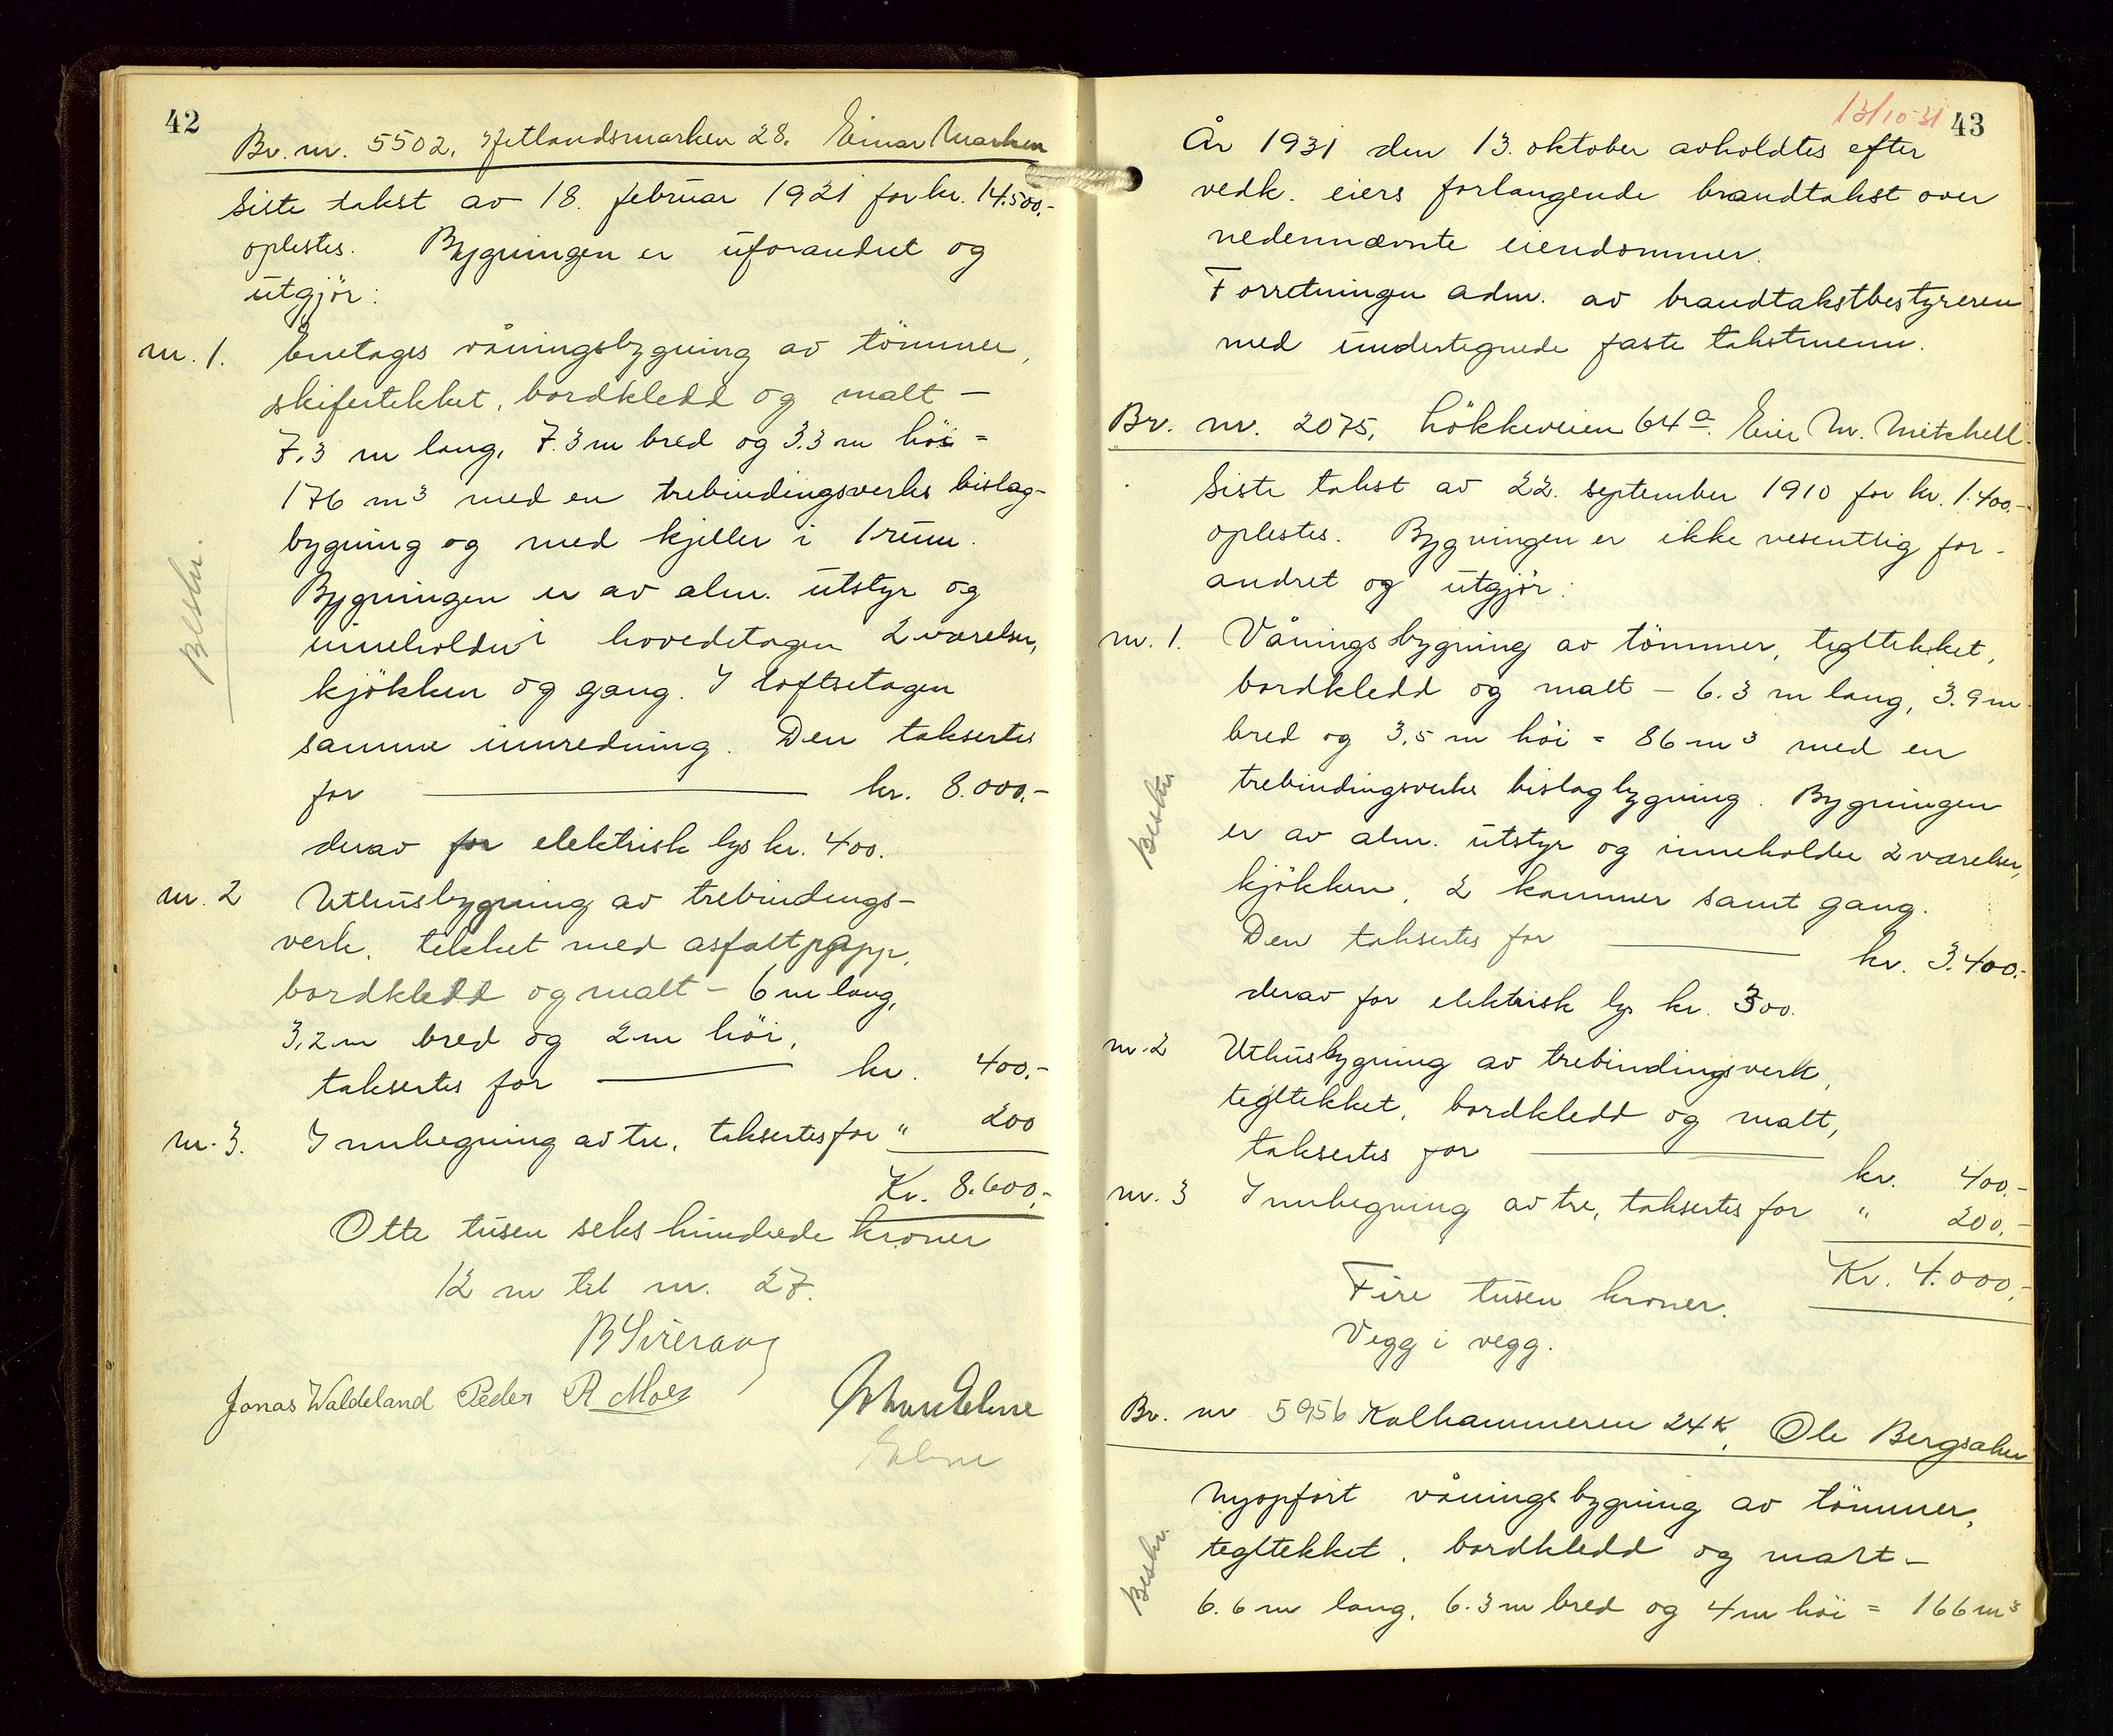 42
Br. nr. 5502. Hetlandsmarken 28. Einar Marken
Siste takst av 18. februar 1921 for kr. 14.500.-
oplestes. Bygningen er uforandret og
utgjör:
nr. 1. Enetages våningsbygning av tömmer,
skifertekket, bordkledd og malt -
7,3 m lang, 7.3 m bred og 3.3 m höi =
176 m³ med en trebindingsverks bislag-
bygning og med kjeller i 1 rum.
Bygningen er av alm. utstyr og
inneholder i hovedetagen 2 værelser,
kjökken og gang. I loftsetagen
samme innredning. Den taksertes
for kr. 8.000.-
derav for elektrisk lys kr. 400.
Beskr.
nr. 2 Uthusbygning av trebindings-
verk, tekket med asfaltpapp,
bordkledd og malt - 6 m lang,
3,2 m bred og 2 m höi,
taksertes for kr. 400.-
nr. 3. Innhegning av tre, taksertes for " 200
Kr. 8.600.-
Otte tusen seks hundrede kroner
12 m til nr. 27.
Jonas Waldeland Peder R Moe
13/10-31
43
År 1931 den 13. oktober avholdtes efter
vedk. eiers forlangende brandtakst over
nedennævnte eiendommer.
Forretningen adm. av brandtakstbestyreren
med undertegnede faste takstmenn.
Br. nr. 2075, Lökkeveien 64a. Eier M. Mitchell.
Siste takst av 22. september 1910 for kr. 1.400.-
oplestes. Bygningen er ikke vesentlig for-
andret og utgjör:
nr. 1. Våningsbygning av tömmer, tegltekket,
bordkledd og malt - 6.3 m lang, 3.9 m
bred og 3,5 m höi = 86 m³ med en
trebindingsverks bislagbygning. Bygningen
er av alm. utstyr og inneholder 2 værelser,
kjökken, 2 kammer samt gang.
Den taksertes for kr. 3.400.-
derav for elektrisk lys kr. 300.
Beskr.
nr. 2 Uthusbygning av trebindingsverk,
tegltekket, bordkledd og malt,
taksertes for kr. 400.-
nr. 3 Innhegning av tre, taksertes for " 200.-
Kr. 4.000.-
Fire tusen kroner.
Vegg i vegg.
Br. nr 5956 Kalhammeren 24 K, Ole Bergsaker
Nyopfört våningsbygning av tömmer,
tegltekket, bordkledd og malt -
6.6 m lang, 6.3 m bred og 4 m höi = 166 m³
Beskr.